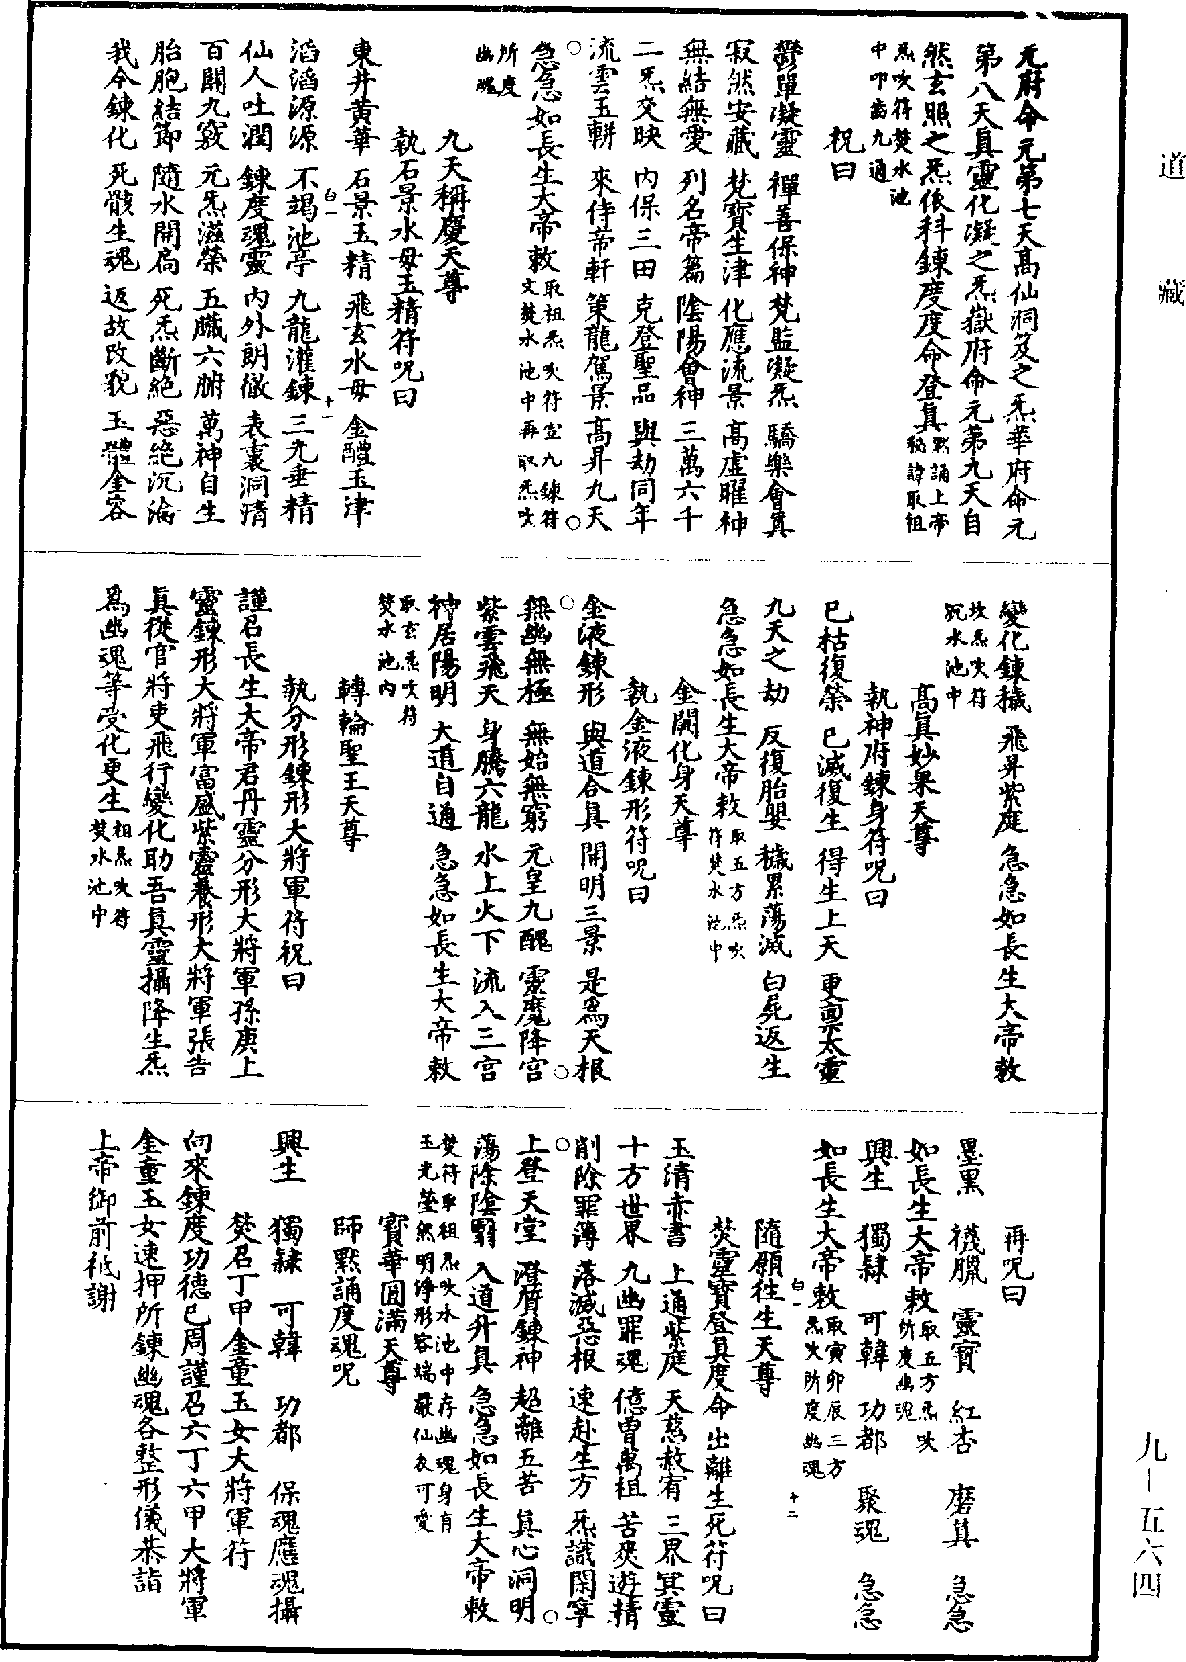 道藏
九—五六四
元府命元第七天高仙洞笈之炁華府命元
第八天真靈化凝之炁嶽府命元第九天自
然玄照之炁依科鍊度度命登真默誦上帝秘諱取祖
炁吹符焚水池中叩齒九通
祝曰
鬱單凝靈 禪善保神 梵監凝炁 驕樂會真
寂然安藏 梵寶生津 化應流景 高虛曜神
無結無愛 列名帝篇 陰陽會神 三萬六千
二炁交映 內保三田 克登聖品 與劫同年
流雲玉軿 來侍帝軒 策龍駕景 高昇九天
急急如長生大帝敕取祖炁吹符宣九鍊符文焚水池中再取炁吹
所度幽魂
九天稱慶天尊
執石景水母玉精符呪曰
東井黃華 石景玉精 飛玄水母 金醴玉津
滔滔源源 不竭池亭 九龍灌鍊 三光垂精
仙人吐潤 鍊度魂靈 內外朗徹 表裏洞清
百關九竅 元炁滋榮 五臟六腑 萬神自生
胎胞結節 隨水開局 死炁斷絕 惡絕沉淪
我今鍊化 死骸生魂 返故改貌 玉體金容
白一
十一
變化鍊穢 飛昇紫庭 急急如長生大帝敕
坎炁吹符沉水池中
高真妙果天尊
執神府鍊身符呪曰
已枯復榮 已滅復生 得生上天 更稟太靈
九天之劫 反復胎嬰 穢累蕩滅 白屍返生
急急如長生大帝敕取五方炁吹符焚水池中
金闕化身天尊
執金液鍊形符呪曰
金液鍊形 與道合真 開明三景 是為天根
無幽無極 無始無窮 元皇九醜 靈魔降宮
紫雲飛天 身騰六龍 水上火下 流入三宮
神居陽明 大道自通 急急如長生大帝敕
取玄炁吹符焚水池內
轉輪聖王天尊
執分形鍊形大將軍符祝曰
謹召長生大帝君丹靈分形大將軍孫庚上
靈鍊形大將軍富盛紫靈養形大將軍張告
真從官將吏飛行變化助吾真靈攝降生炁
為幽魂等受化更生祖炁吹符焚水池中
再呪曰
墨黑 襪臘 靈寶 紅杏 磨真 急急
如長生大帝敕取五方炁吹所度幽魂
興生 獨隸 可韓 功都 聚魂 急急
如長生大帝敕取寅卯辰三方炁吹所度幽魂
白一
十二
隨願往生天尊
焚靈寶登真度命出離生死符呪曰
玉清赤書 上通紫庭 天慈赦宥 三界冥靈
十方世界 九幽罪魂 億曾萬祖 苦爽遊精
削除罪簿 落滅惡根 速赴生方 炁識閑寧
上登天堂 澄質鍊神 超離五苦 真心洞明
蕩除陰翳 入道升真 急急如長生大帝敕
焚符取祖炁吹水池中存幽魂身有玉光瑩然明淨形容端嚴仙衣可愛
寶華圓滿天尊
師默誦度魂呪
興生 獨隸 可韓 功都 保魂應魂攝
焚召丁甲金童玉女大將軍符
向來鍊度功德已周謹召六丁六甲大將軍
金童玉女速押所鍊幽魂各整形儀恭詣
上帝御前祗謝